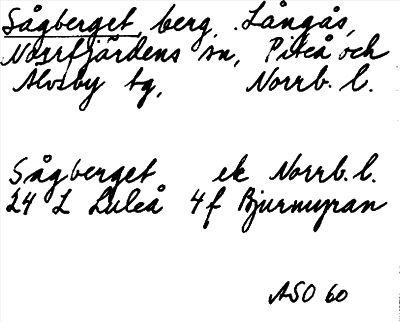 Sågberget berg, Långås,
Norrfjärdens sn, Piteå och
Älvsby tg, Norrb. l.
Sågberget ek Norrb. l.
24 L Luleå 4f Bjurmyran
ASO 60